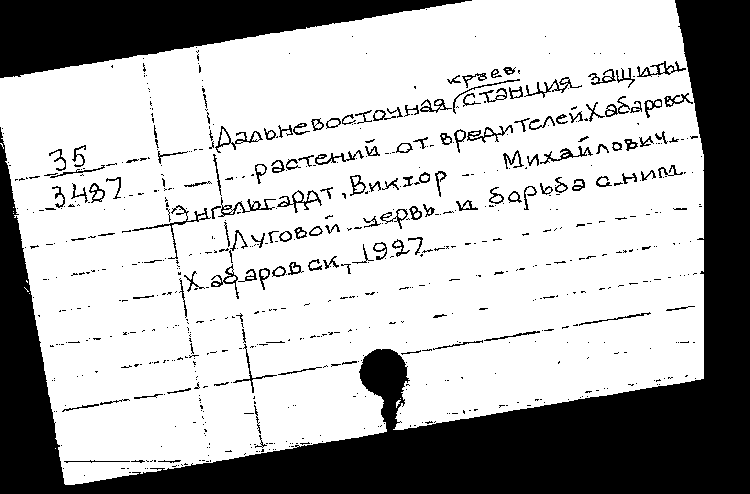 краев.
Дальневосточная станция защиты
35
растений от вредителей. Хабаровск
3487
Энгельгардт, Виктор Михайлович.
Луговой червь и борьба с ним
Хабаровск, 1927